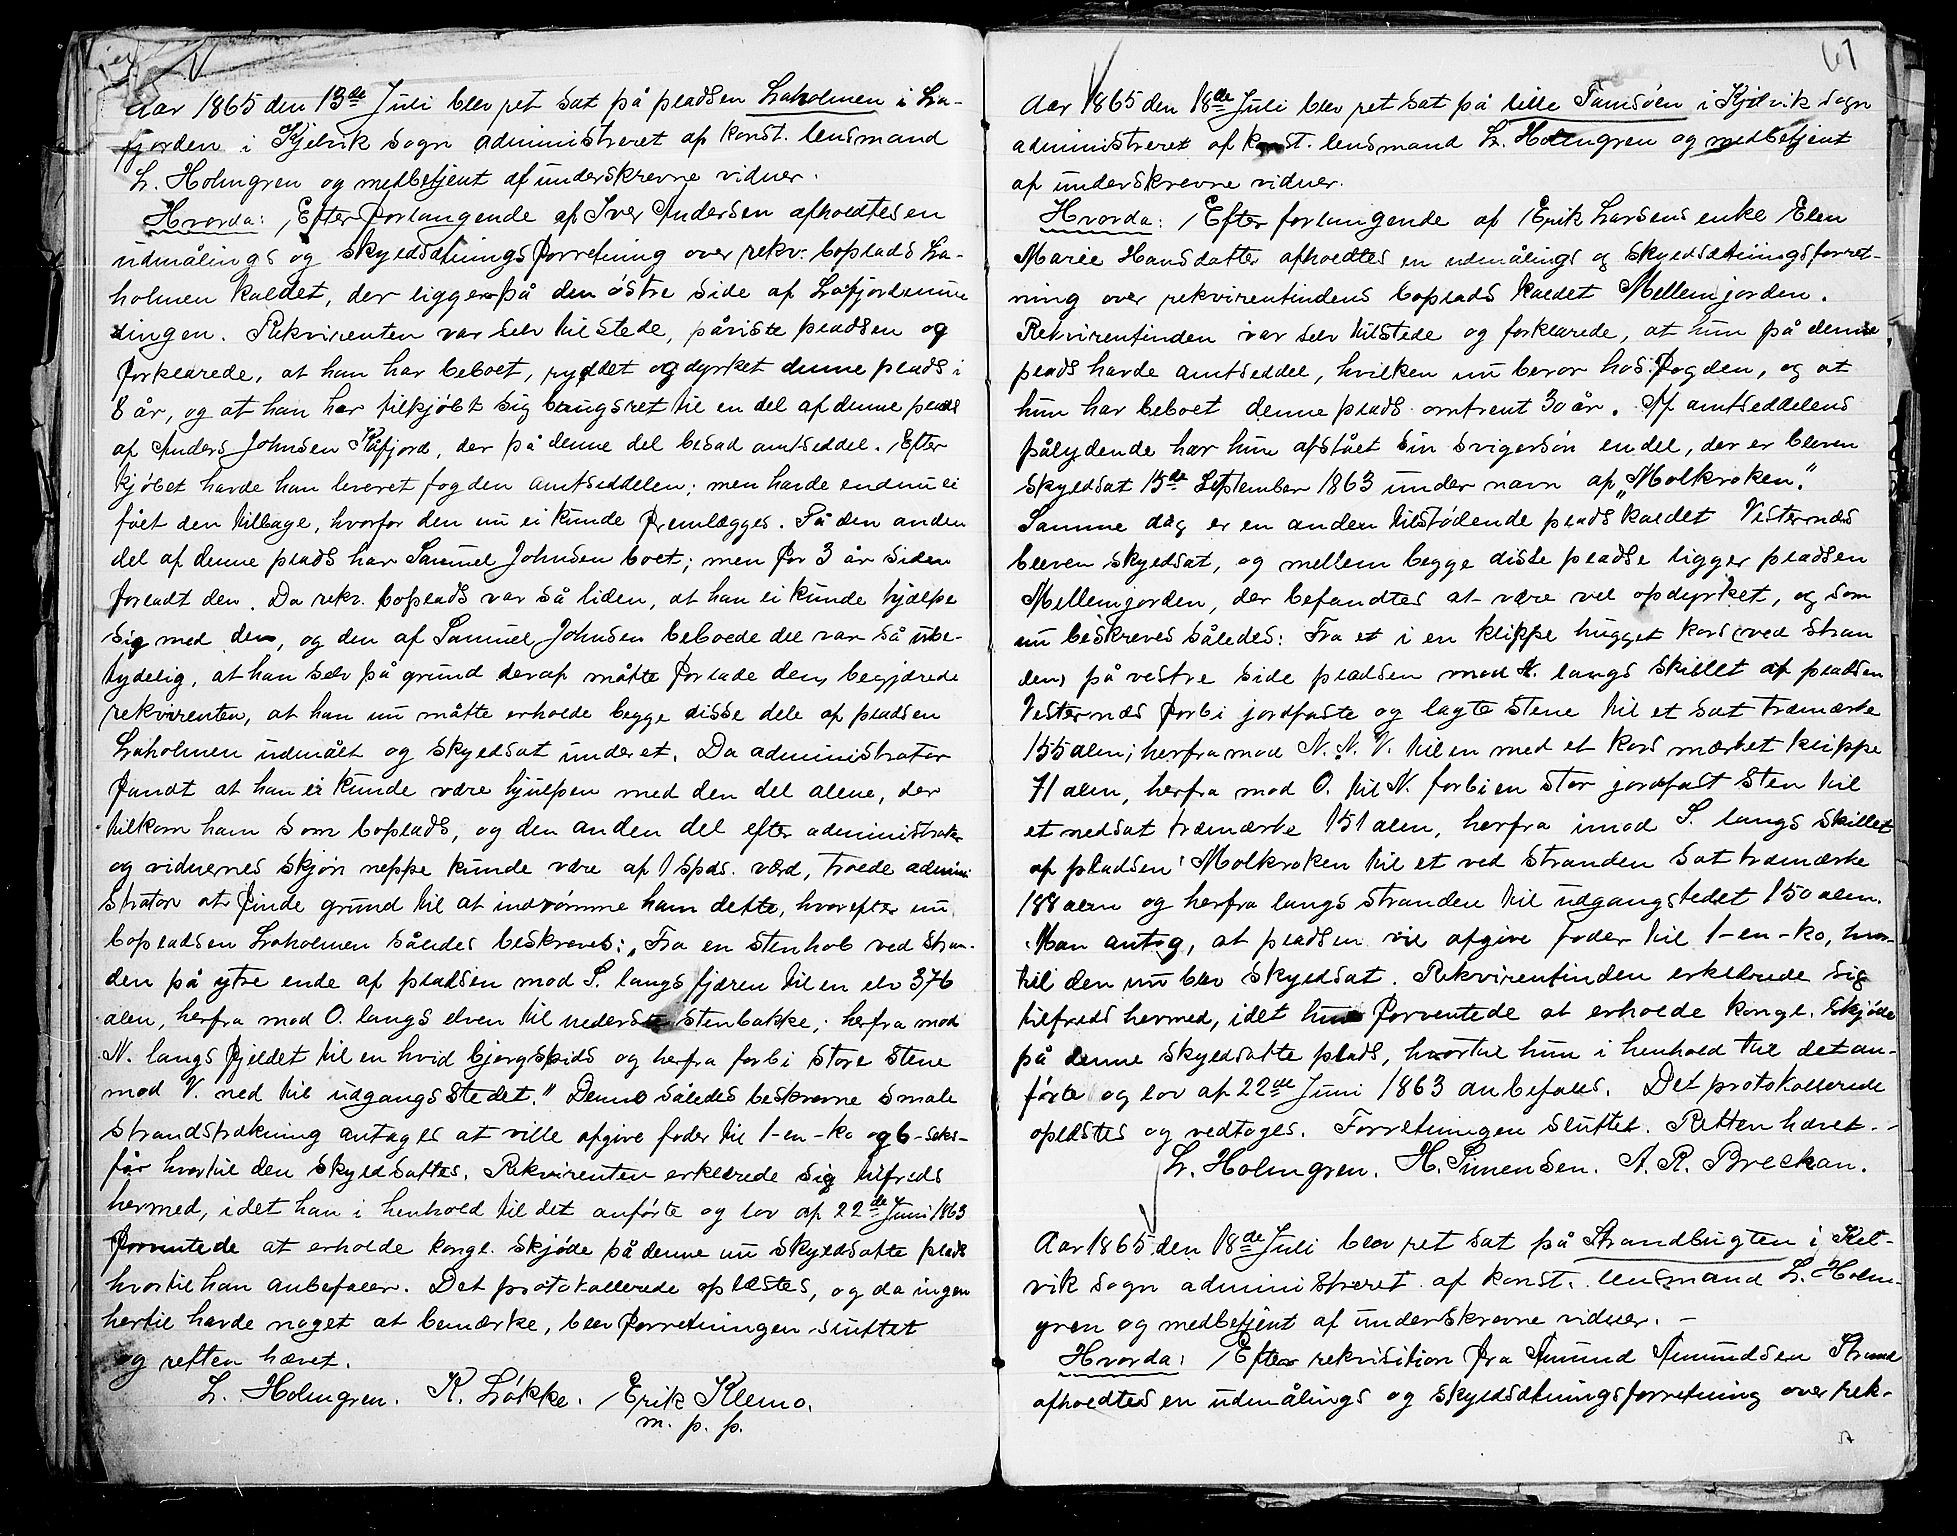 Aar 1865 den 13de Juli blev ret sat på pladsen Laholmen i La-
fjorden i Kjelvik sogn administreret af konst. lensmand
L. Holmgren og medbetjent af underskrevne vidner.
Hvorda: Efter forlangende af Iver Andersen afholdtes en
udmålings og skyldsætningsforretning over rekv: boplads La-
holmen kaldet, der ligger på den østre side af Lafjordmun-
dingen. Rekvirenten var selv tilstede, påviste pladsen og
forklarede, at han har beboet, ryddet og dyrket denne plads i
8 år, og at han har tilkjøbt sig brugsret til en del af denne plads
af Anders Johnsen Kåfjord, der på denne del besad amtseddel. Efter
kjøbet havde han leveret fogden amtseddelen; men havde endnu ei
fået den tilbage, hvorfor den nu ei kunde fremlægges. På den anden
del af denne plads har Samuel Johnsen boet; men for 3 år siden
forladt den. Da rekv. boplads var så liden, at han ei kunde hjælpe
sig med den, og den af Samuel Johnsen beboede del var så ube-
tydelig, at han selv på grund deraf måtte forlade den, begjærede
rekvirenten, at han nu måtte erholde begge disse dele af pladsen
Laholmen udmålt og skyldsat under et. Da administrator
fandt at han ei kunde være hjulpen med den del alene, der
tilkom ham som boplads, og den anden del efter administrator
og vidnernes skjøn neppe kunde være af 1 spds. værd, troede admini
strator at finde grund til at indrømme ham dette, hvorefter nu
bopladsen Laholmen således beskreves: „Fra en stenhob ved stran-
den på ytre ende af pladsen mod S. langs fjæren til en elv 376
alen, herfra mod O. langs elven til nederste stenbakke; herfra mod
N. langs fjeldet til en hvid bjergspids og herfra forbi store stene
mod V. ned til udgangsstedet." Denne således beskrevne smale
strandstrækning antages at ville afgive foder til 1-en-ko og 6-seks-
får hvortil den skyldsattes. Rekvirenten erklærede sig tilfreds
hermed, idet han i henhold til det anførte og lov af 22de Juni 1863
forventede at erholde kongl. skjøde på denne nu skyldsatte plads
hvortil han anbefales. Det protokollerede oplæstes, og da ingen
hertil havde noget at bemærke, blev forretningen sluttet
og retten hævet.
L. Holmgren. K. Løkke. Erik Klemo.
m. p. p.
61
Aar 1865 den 18de Juli blev ret sat på lille Tamsøen i Kjelvik sogn
administreret af konst. lensmand L. Holmgren og medbetjent
af underskrevne vidner.
Hvorda: Efter forlangende af Erik Larsens enke Elen
Marie Hansdatter afholdtes en udmålings og skyldsætningsforret-
ning over rekvirentindens boplads kaldet Mellemjorden.
Rekvirentinden var selv tilstede og forklarede, at hun på denne
plads havde amtseddel, hvilken nu beror hos fogden, og at
hun har beboet denne plads omtrent 30 år. Af amtseddelens
pålydende har hun afstået sin svigersøn en del, der er bleven
skyldsat 15de September 1863 under navn af „Molkroken."
Samme dag er en anden tilstødende plads kaldet Vesternæs
bleven skyldsat, og mellem begge disse pladse ligger pladsen
Mellemjorden, der befandtes at være vel opdyrket, og som
nu beskreves således: Fra et i en klippe hugget kors (ved stran
den) på vestre side pladsen mod N. langs skillet af pladsen
Vesternæs forbi jordfaste og lagte stene til et sat træmærke
155 alen; herfra mod N. N. V. til en med et kors mærket klippe
71 alen, herfra mod O. til N. forbi en stor jordfast sten til
et nedsat træmærke 151 alen, herfra imod S. langs skillet
af pladsen Molkroken til et ved stranden sat træmærke
188 alen og herfra langs stranden til udgangstedet 150 alen.
Man antog, at pladsen vil afgive foder til 1-en-ko, hvor-
til den nu blev skyldsat. Rekvirentinden erklærede sig
tilfreds hermed, idet hun forventede at erholde kongl. skjøde
på denne skyldsatte plads, hvortil hun i henhold til det an-
førte og lov af 22de Juni 1863 anbefales. Det protokollerede
oplæstes og vedtoges. Forretningen sluttet. Retten hævet. -
L. Holmgren. H. Simensen. A. R. Breckan.
Aar 1865 den 18de Juli blev ret sat på Strandbugten i Kel-
vik sogn administreret af konst. lensmand L. Holm-
gren og medbetjent af underskrevne vidner. -
Hvorda: Efter rekvisition fra Amund Amundsen Strand
afholdtes en udmålings og skyldsætningsforretning over rek-